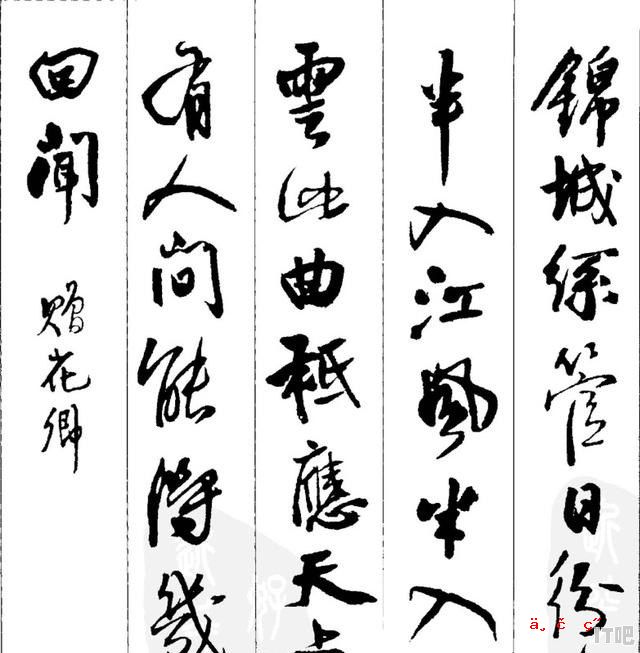 錦城絲管日紛
半入江風半入
雲此曲秖應天上
有人間能得幾
回聞
贈花卿
IT吧